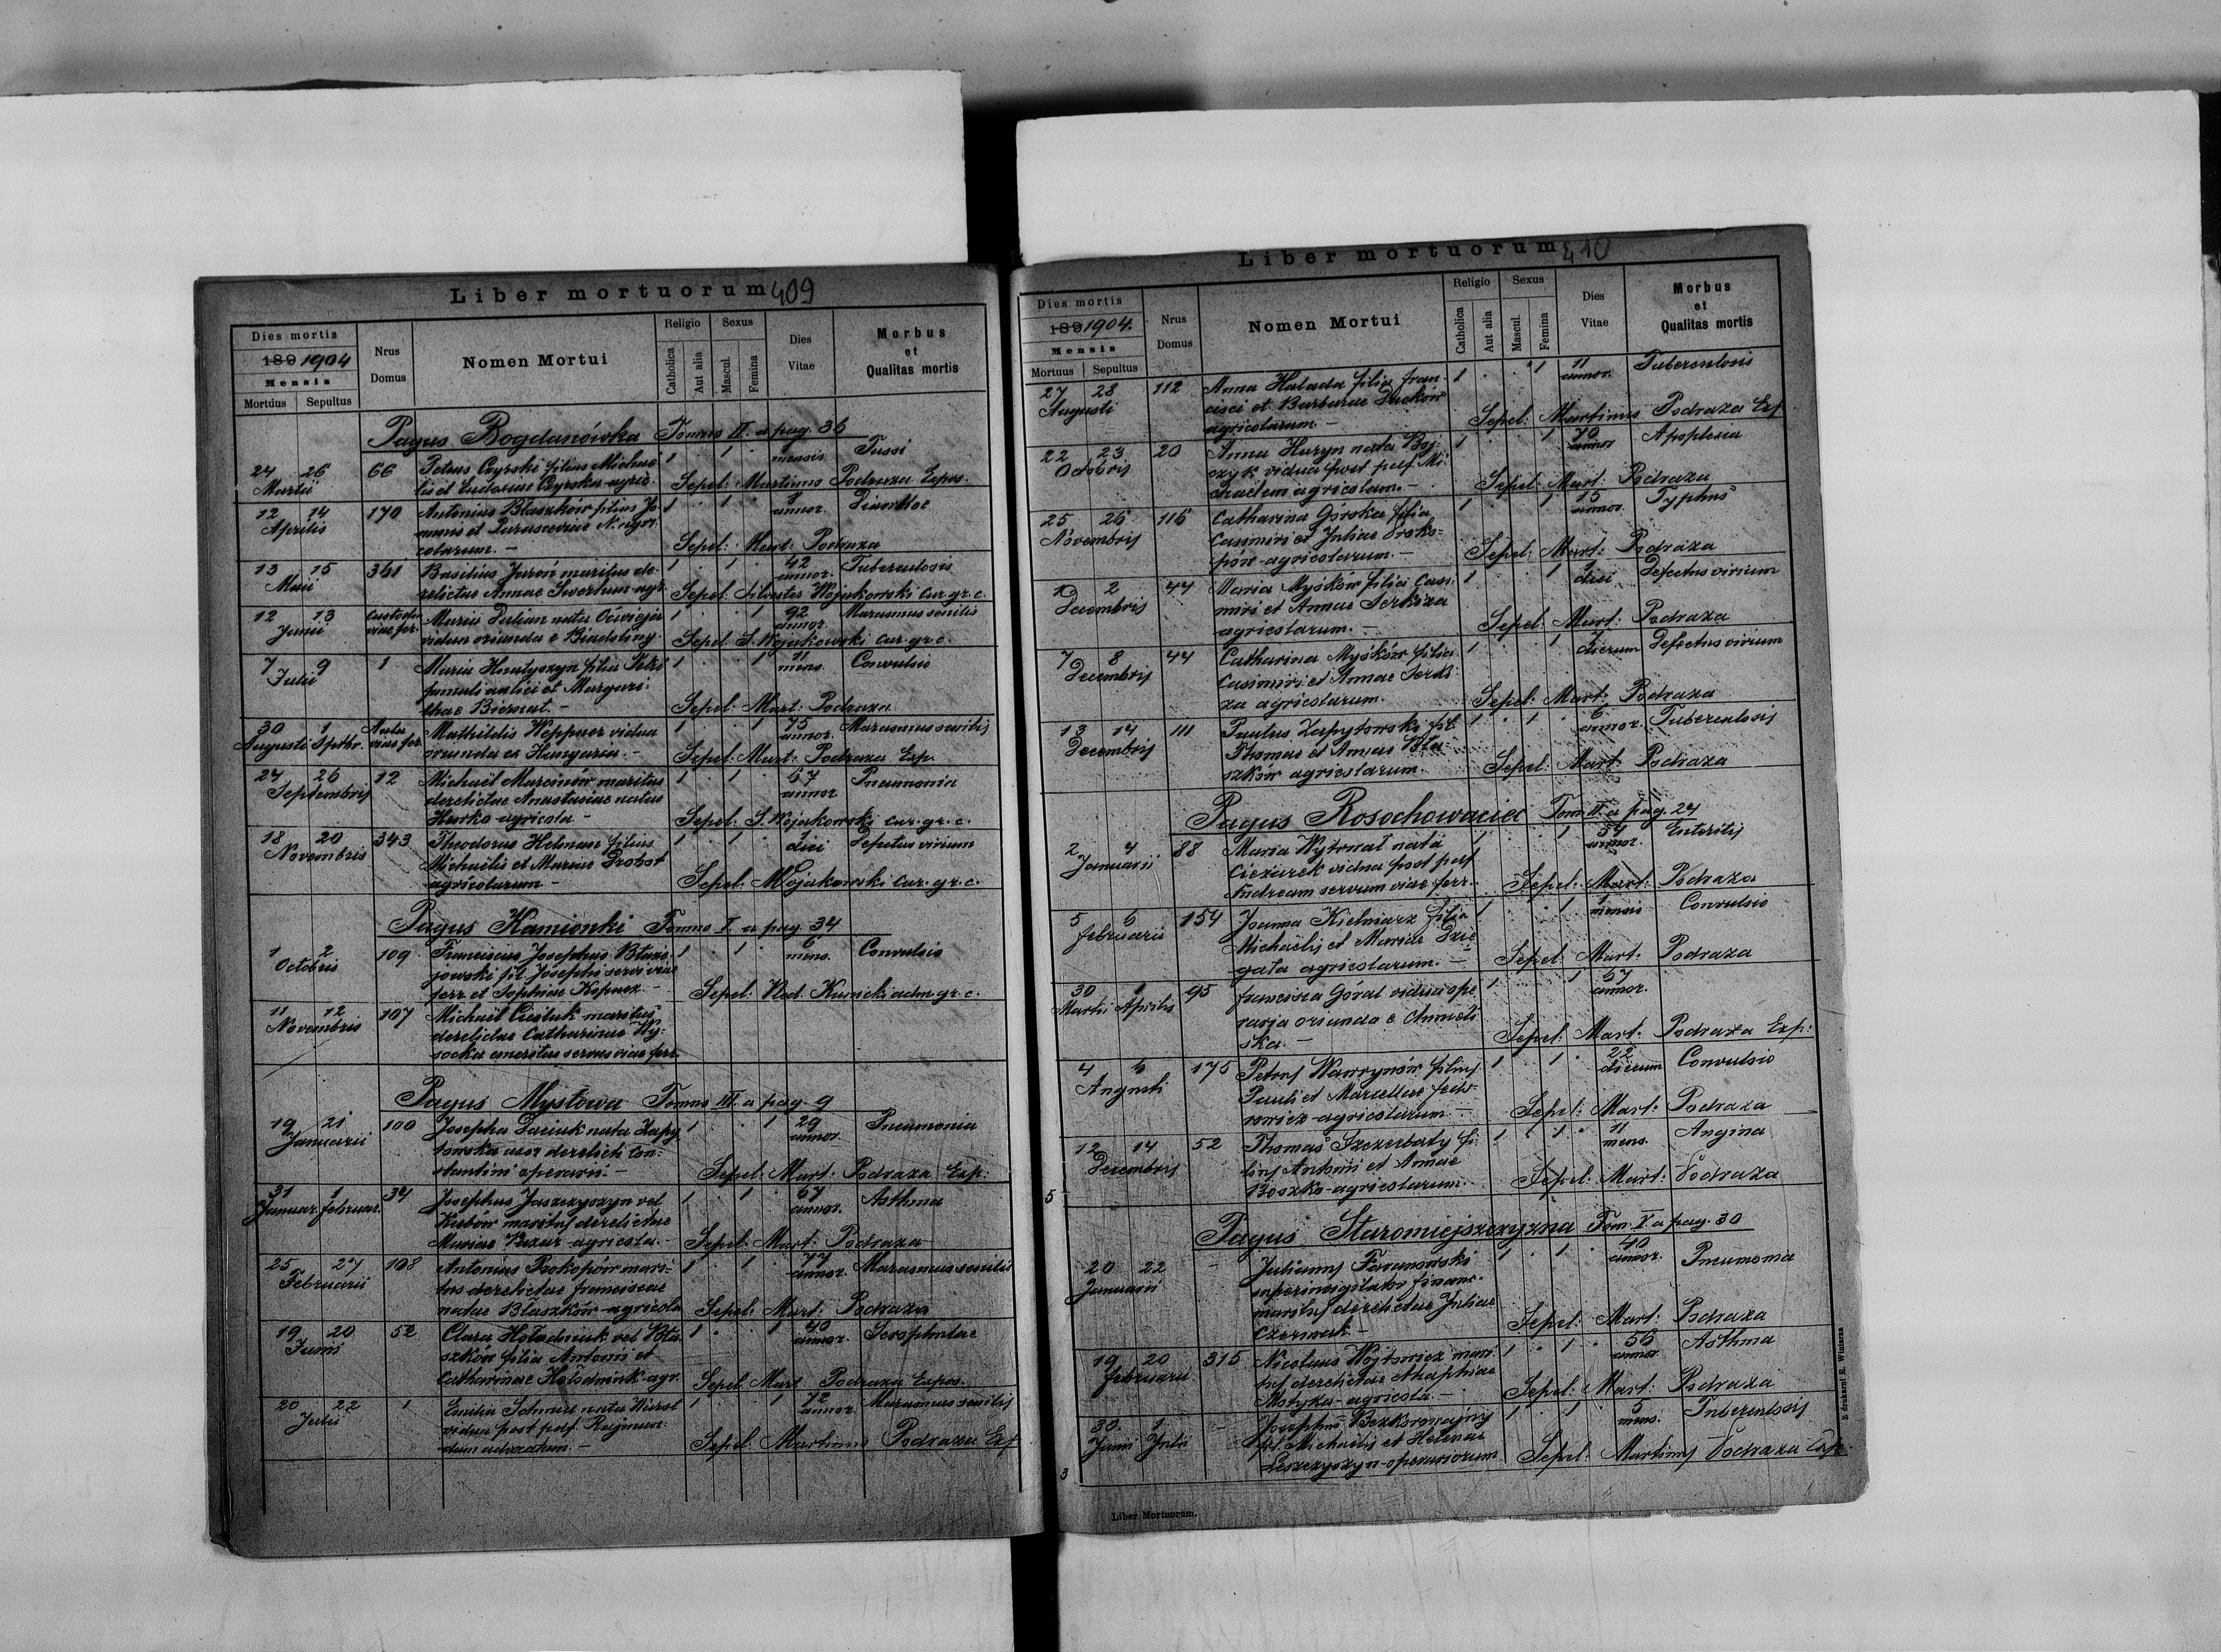 Liber mortuorum 409
Dies mortis
189 1904
Mensis
Mortuus Sepultus
Nrus Domus
Nomen Mortui
Religio
Catholica Aut alia
Sexus
Mascul. Femina
Dies Vitae
Morbus et Qualitas mortis
Pagus Bogdanówka Tomus II. a pag. 36
24 26 66 Petrus Czyrski filius Michae 1 1 mensis Tussi
Martii lis et Eudociae Czyrska agric. Sepel. Martinus Podraza Expos.
12 14 170 Antonius Błaszków filius Jo 1 1 8 annor.
Aprilis annis et Parasceviae N. agri
colarum. — Sepel: Mart: Podraza
13 15 361 Basilius Juroń maritus de 1 1 42 annor. Tuberculosis
Maii relictae Annae Swertun agr. Sepel. Silvester Wojakowski cur. gr. c.
12 13 Maria Dulian nata 1 1 92 annor. Marasmus senilis
Junii viae fer. vidua oriunda e Biadoliny. Sepel. S. Wojakowski cur. gr. c.
7 9 1 Maria Hnatyszyn filia Petri 1 1 11 mens. Convulsio
Julii famuli aulici et Margari:
thae Biernat. — Sepel: Mart: Podraza
30 1 Mathildis Weppner vidua 1 1 75 annor. Marasmus senilis
Augusti Spthr. viae fer. oriunda ex Hungaria. — Sepel: Mart: Podraza Exp.
24 26 12 Michael Marcinów maritus 1 1 67 annor Pneumonia
Septembris derelictae Anastasiae natae
Harko agricola — Sepel: S. Wojakowski cur. gr. c.
18 20 343 Theodorus Helman filius 1 1 diei Defectus virium
Novembris Michaelis et Mariae Drobot
agricolarum — Sepel: Wojakowski cur. gr. c.
Pagus Kamionki Tomus I a pag 34
1 2 109 Franciscus Josephus Błaże 1 1 6 mens. Convulsio
Octobris jowski fil. Josephi servi viae
ferr et Sophiae Kopacz — Sepel: Vlad. Kunicki adm. gr. c.
11 12 107 Michael Cieśluk maritus
Novembris derelictae Catharinae Wy:
socka emeritus servus viae ferr.
Pagus Mysłowa Tomus III. a pag. 9
19 21 100 Josepha Daciuk nata Zapy 1 1 29 annor. Pneumonia
Januarii towska uxor derelicti Con:
stantini operarii. — Sepel: Mart: Podraza Exp:
31 1 34 Josephus Jaszczyszyn vel 1 1 67 annor. Asthma
Januar. februar. maritus derelictae
Mariae agricola. — Sepel: Mart: Podraza
25 27 108 Antonius Prokopów mari: 1 1 77 annor. Marasmus senilis
Februarii tus derelictae franciscae
natae Błaszków agricola Sepel: Mart: Podraza
19 20 52 Clara Hołodniuk vel Bła 1 1 40 annor. Scrophulae
Junii szków filia Antonii et
Catharinae Hołodniuk agr. Sepel. Mart Podraza Expos.
20 22 1 Emilia Schmid nata Wurst 1 1 72 annor. Marasmus senilis
Julii vidua post pdf. Rajmun:
dum advocatum. — Sepel Martinus Podraza Exp
Liber mortuorum 410
Dies mortis
189 1904.
Mensis
Mortuus Sepultus
Nrus Domus
Nomen Mortui
Religio
Catholica Aut alia
Sexus
Mascul. Femina
Dies Vitae
Morbus et Qualitas mortis
27 28 112 Anna Halada filia fran: 1 1 11 annor. Tuberculosis
Augusti cisci et Barbarae
agricolarum — Sepel: Martinus Podraza Exp
22 23 20 Anna Huryn nata Boj: 1 1 70 annor Apoplexia
Octobris czyk vidua post pdf. Mi:
chaelem agricolam. — Sepel: Mart: Podraza
25 26 116 Catharina Górska filia 1 1 15 annor. Typhus
Novembris Casimiri et Juliae Proko:
pów agricolarum. — Sepel: Mart: Podraza
1 2 44 Maria Myśków filia Casi: 1 1 1 diei Defectus virium
Decembris miri et Annae Serkiza
agricolarum. — Sepel: Mart: Podraza
7 8 44 Catharina Myśków filia 1 1 7 dierum Defectus virium
Decembris Casimiri et Annae Serki
za agricolarum. Sepel: Mart: Podraza
13 14 111 Paulus Zapytowski fil. 1 1 6 annor. Tuberculosis
Decembris Thomae et Annae Bła:
szków agricolarum. Sepel: Mart: Podraza
Pagus Rosochowaciec Tom II. a pag. 24
2 4 88 Maria Wytrwał nata 1 1 54 annor. Enteritis
Januarii Ciezarek vidua post pdf
Andream servum viae ferr. Sepel: Mart: Podraza
5 6 154 Joanna Kielniarz filia 1 1 1 mensis Convulsio
februarii Michaelis et Mariae Dzie
gata agricolarum. — Sepel: Mart. Podraza
30 1 95 francisca Góral vidua ope 1 1 67 annor.
Martii Aprilis raria oriunda e
ska. — Sepel: Mart. Podraza Exp.
4 6 175 Petrus Wawrynów filius 1 1 22 dierum Convulsio
Augusti Pauli et Marcellae fedo:
rowicz agricolarum — Sepel: Mart: Podraza
12 14 52 Thomas Szczerbaty fi 1 1 11 mens. Angina
Decembris lius Antonii et Annae
Boszko agricolarum. Sepel: Mart: Podraza
5
Pagus Staromiejszczyzna Tom. V a pag. 30
20 22 — Julianus Taranowski 1 1 40 annor. Pneumonia
Januarii supervigilator financ.
maritus derelictae Juliae
Czermak. — Sepel: Mart: Podraza
19 20 315 Nicolaus Wojtowicz mari 1 1 56 annor. Asthma
februarii tus derelictae Ahaphiae
Motyka agricola. — Sepel: Mart: Podraza
30. 1 — Josephus Bezkorowajny 1 1 5 mens. Tuberculosis
Junii Julii fil. Michaelis et Helenae
Leszczyszyn operariorum. Sepel: Martinus Podraza Exp.
3
Liber Mortuorum.
Z drukarni E. Winiarza